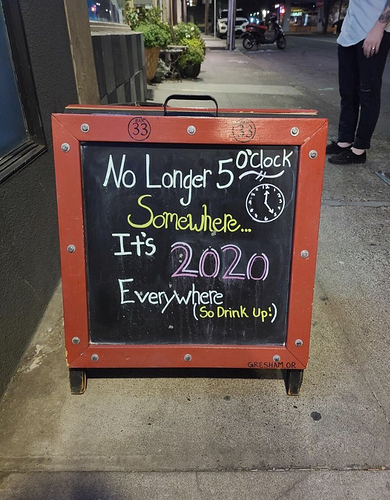 33
33
No Longer 5 O'clock
Somewhere...
It's 2020
Everywhere
(So Drink Up!)
GRESHAM OR